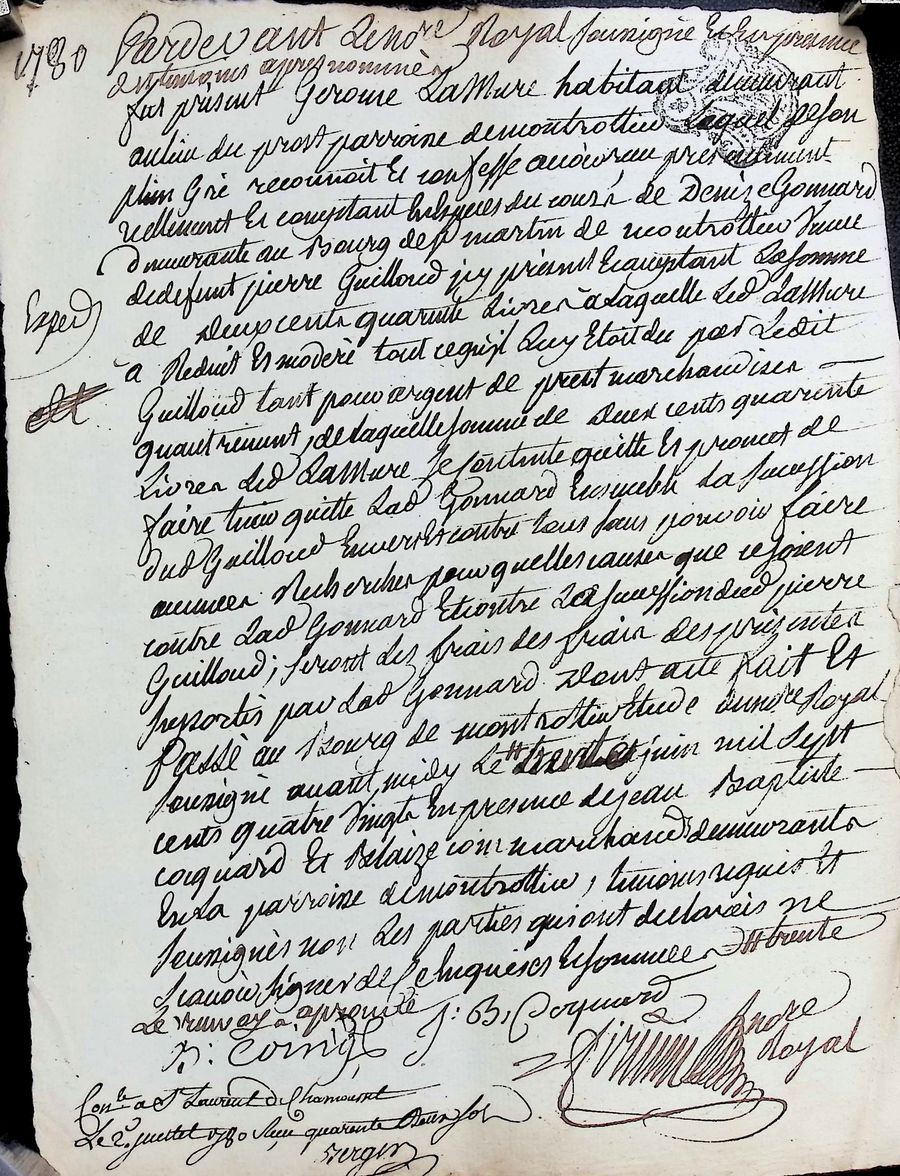 1780
Pardevant Le no.re Royal soussigné Et En presence
de temoins apres nommés
fut présent Gerome LaMure habitant demeurant
au lieu du prost parroisse de montrottier Lequel de son
plein Gré reconnoit Et confesse avoir eu presentement
rellement Et comptant En Espèces du cours de Denize Gonnard
demeurante au Bourg de St martin de montrottier Veuve
de defunt pierre Guilloud icy présent Et acceptant La somme
de deux cents quarente Livres à Laquelle Led LaMure
a Reduit Et moderé tout ce qu'il Luy Etoit du par Ledit
Guilloud tant pour argent de prest marchandises
qu'autrement, de laquelle somme de deux cents quarente
Livres Led LaMure se contente quitte Et promet de
faire tenir quitte Lad Gonnard Ensemble La succession
dud Guilloud Envers Et contre tous sans pouvoir faire
aucunes Recherches pour quelles causes que ce soient
contre Lad Gonnard Et contre La succession dud pierre
Guilloud; seront Les frais des présentes
supportés par Lad Gonnard Dont acte fait Et
Passé au Bourg de montrottier Etude du no.re Royal
soussigné avant midy Le trente juin mil sept
cents quatre Vingt En presence de jean Baptiste
coquard Et Blaize coing marchands demeurants
En La parroisse de montrottier, temoins requis Et
soussignés non Les parties qui ont declarés ne
scavoir signer de ce Enquises Et sommées trente
Le renvoy approuvé
B: coing J: B. Coquard
no.re
Royal
Exped
Con.lé a St Laurent de Chamousset
Le 2. juillet 1780 Reçu quarente deux sols
Berger